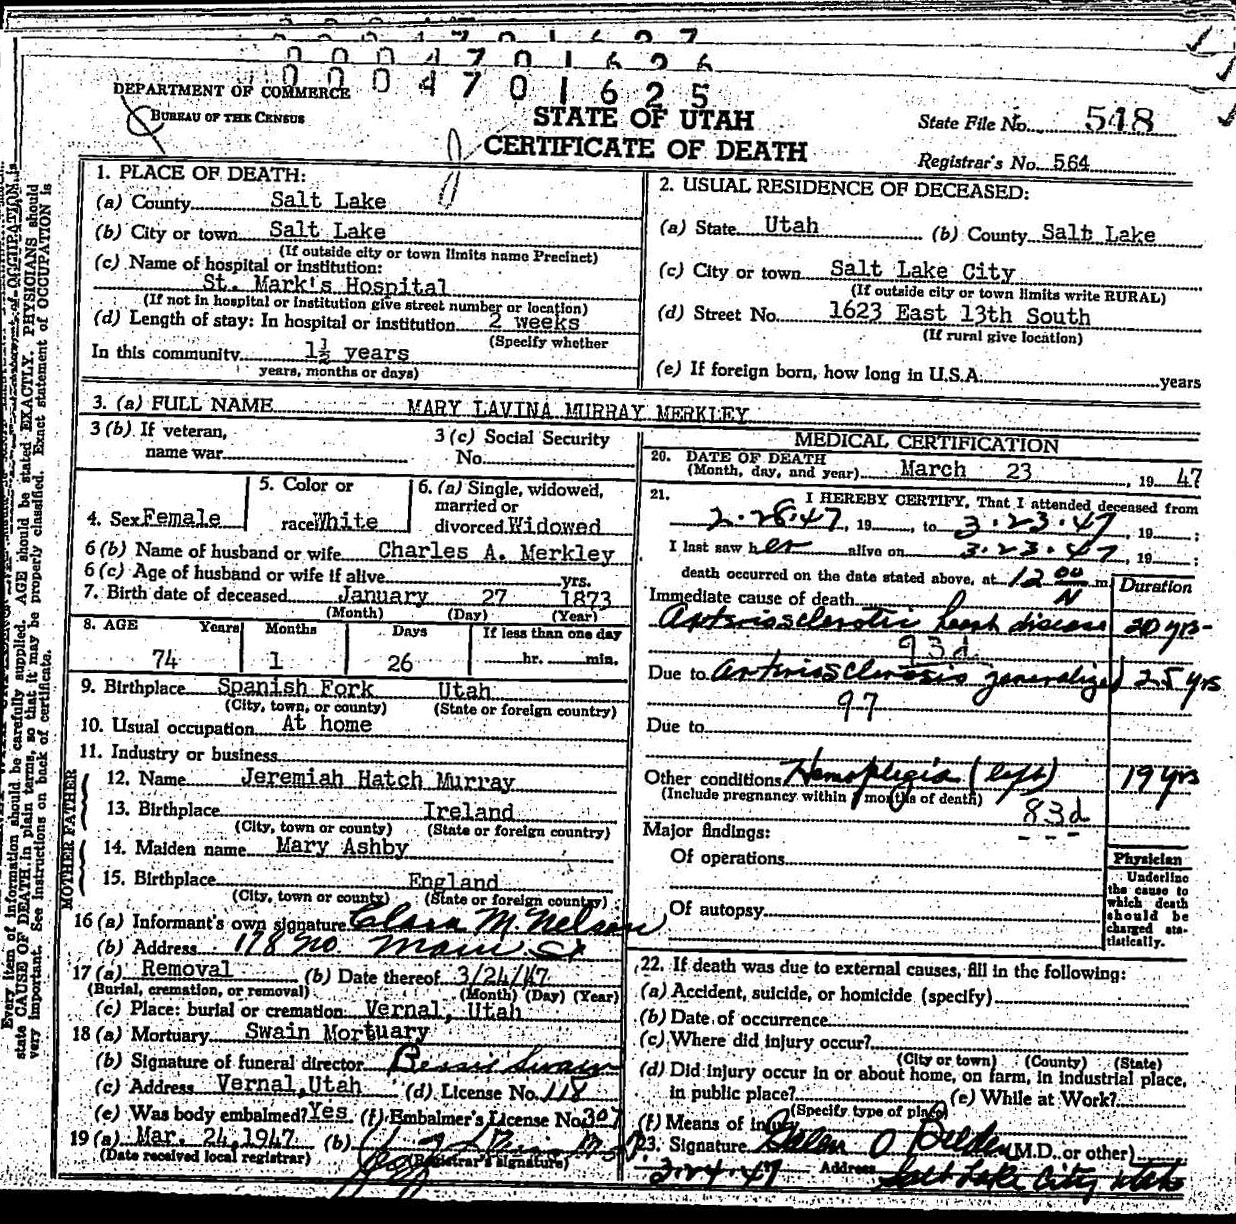 0 0 0 4 7 0 1 6 2 7
0 0 0 4 7 0 1 6 2 6
0 0 0 4 7 0 1 6 2 5
DEPARTMENT OF COMMERCE
BUREAU OF THE CENSUS
STATE OF UTAH
CERTIFICATE OF DEATH
State File No. 548
Registrar's No. 564
1. PLACE OF DEATH:
(a) County Salt Lake
(b) City or town Salt Lake
(If outside city or town limits name Precinct)
(c) Name of hospital or institution:
St. Mark's Hospital
(If not in hospital or institution give street number or location)
(d) Length of stay: In hospital or institution 2 weeks
(Specify whether
In this community 1½ years
years, months or days)
2. USUAL RESIDENCE OF DECEASED:
(a) State Utah (b) County Salt Lake
(c) City or town Salt Lake City
(If outside city or town limits write RURAL)
(d) Street No. 1623 East 13th South
(If rural give location)
(e) If foreign born, how long in U.S.A. years
3. (a) FULL NAME MARY LAVINA MURRAY MERKLEY
3 (b) If veteran,
name war
3 (c) Social Security
No.
4. Sex Female
5. Color or
race White
6. (a) Single, widowed,
married or
divorced Widowed
6 (b) Name of husband or wife Charles A. Merkley
6 (c) Age of husband or wife if alive yrs.
7. Birth date of deceased January 27 1873
(Month) (Day) (Year)
8. AGE Years Months Days If less than one day
74 1 26 hr. min.
9. Birthplace Spanish Fork Utah
(City, town, or county) (State or foreign country)
10. Usual occupation At home
11. Industry or business
FATHER
12. Name Jeremiah Hatch Murray
13. Birthplace Ireland
(City, town or county) (State or foreign country)
MOTHER
14. Maiden name Mary Ashby
15. Birthplace England
(City, town or county) (State or foreign country)
16 (a) Informant's own signature Clara M. Nelson
(b) Address 178 no. Main St
17 (a) Removal (b) Date thereof 3/24/47
(Burial, cremation, or removal) (Month) (Day) (Year)
(c) Place: burial or cremation Vernal, Utah
18 (a) Mortuary Swain Mortuary
(b) Signature of funeral director Bessie Swain
(c) Address Vernal, Utah (d) License No. 118
(e) Was body embalmed? Yes (f) Embalmer's License No. 307
19 (a) Mar. 24, 1947 (b)
(Date received local registrar) (Registrar's signature)
MEDICAL CERTIFICATION
20. DATE OF DEATH
(Month, day, and year) March 23, 1947
21. I HEREBY CERTIFY, That I attended deceased from
2.28.47, 19 , to 3.23.47, 19 ;
I last saw her alive on 3.23.47, 19 ;
death occurred on the date stated above, at 12 00 m.
N
Duration
Immediate cause of death
Arteriosclerotic heart disease 20 yrs-
93d
Due to Arteriosclerosis generalized 25 yrs
97
Due to
Other conditions Hemiplegia (left) 19 yrs
(Include pregnancy within months of death)
83d
Major findings:
Of operations
Of autopsy
Physician
Underline
the cause to
which death
should be
charged sta-
tistically.
22. If death was due to external causes, fill in the following:
(a) Accident, suicide, or homicide (specify)
(b) Date of occurrence
(c) Where did injury occur?
(City or town) (County) (State)
(d) Did injury occur in or about home, on farm, in industrial place,
in public place? (e) While at Work?
(Specify type of place)
(f) Means of injury
23. Signature (M.D. or other)
3.24.47 Address Salt Lake City Utah
Every item of information should be carefully supplied. AGE should be stated EXACTLY. PHYSICIANS should
state CAUSE OF DEATH in plain terms, so that it may be properly classified. Exact statement of OCCUPATION is
very important. See instructions on back of certificate.